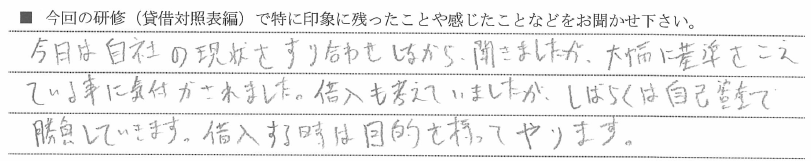 ■ 今回の研修（貸借対照表編）で特に印象に残ったことや感じたことなどをお聞かせ下さい。
今日は自社の現状をすり合わせしながら、聞きましたが、大幅に基準をこえ
ている事に気付かされました。借入も考えていましたが、しばらくは自己資金で
勝負していきます。借入する時は目的を持ってやります。